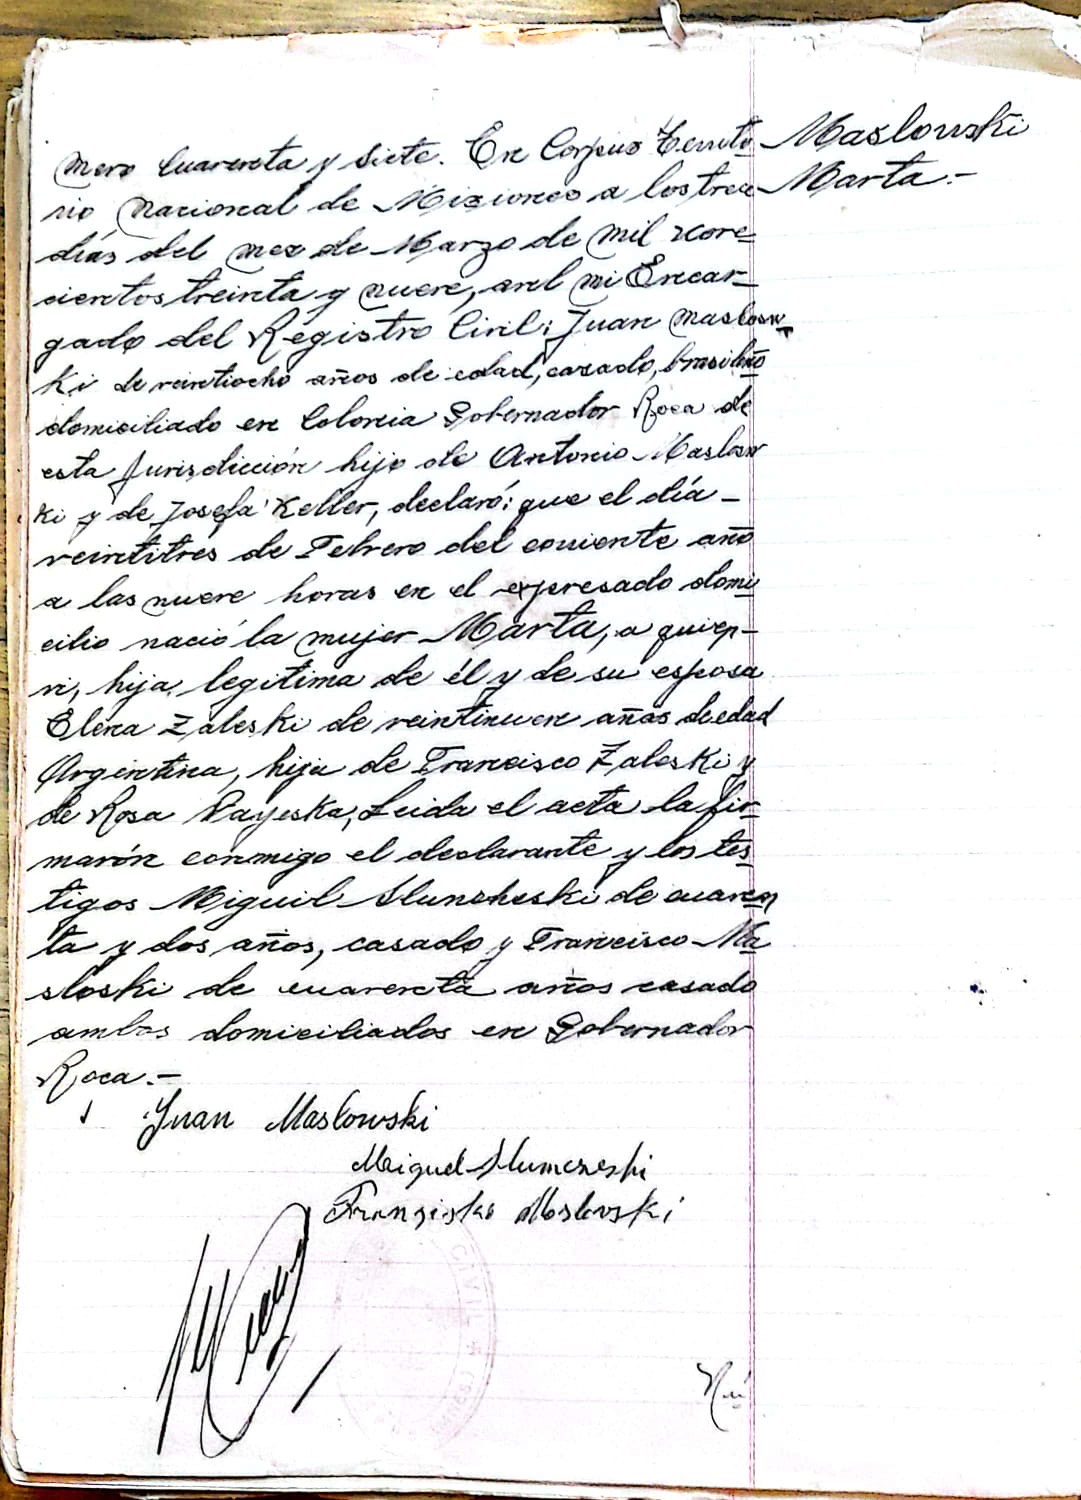 mero Cuarenta y Siete. En Corpus Territo-
Maslowski
rio Nacional de Misiones a los trece
Marta.-
días del mes de Marzo de mil nove-
cientos treinta y nueve, ante mi Encar-
gado del Registro Civil: Juan Maslows-
ki de veintiocho años de edad, casado, brasileño
domiciliado en Colonia Gobernador Roca de
esta Jurisdicción hijo de Antonio Maslows
ki y de Josefa Keller, declaró: que el día -
veintitrés de Febrero del corriente año
a las nueve horas en el expresado domi
cilio nació la mujer Marta, a quien
vi, hija legitima de él y de su esposa
Elena Zaleski de veintinueve años de edad
Argentina, hija de Francisco Zaleski y
de Rosa Payeska, Leida el acta la fir-
marón conmigo el declarante y los tes-
tigos Miguil Sluncheski de cuaren
ta y dos años, casado y Francisco Ma
sloski de cuarenta años casado
ambos domiciliados en Gobernador
Roca.-
Juan Maslowski
Miguel Slumczeski
Franzisko Moslovski
CIVIL
Nú